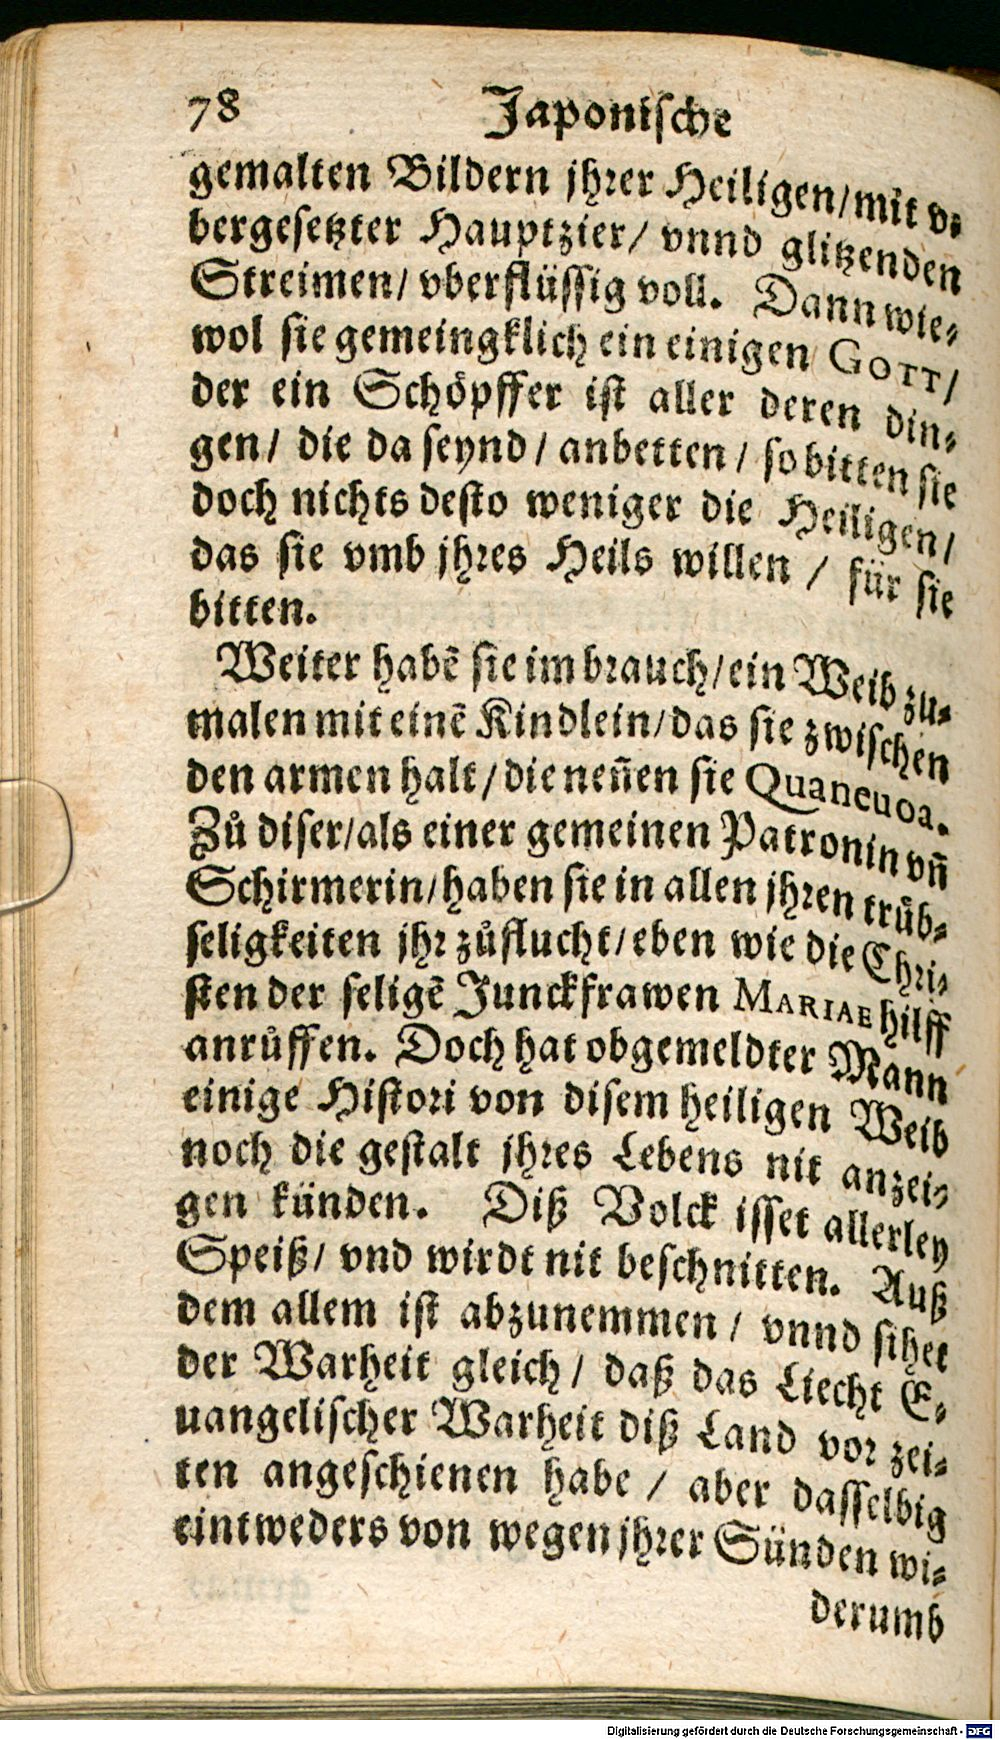 78 Japonische
gemalten Bildern jhrer Heiligen/mit v⸗
bergesetzter Hauptzier/ vnnd glitzenden
Streimen/ vberflüssig voll. Dann wie⸗
wol sie gemeingklich ein einigen GOTT/
der ein Schöpffer ist aller deren din⸗
gen/ die da seynd/ anbetten/ so bitten sie
doch nichts desto weniger die Heiligen/
das sie vmb jhres Heils willen / für sie
bitten.
Weiter habẽ sie im brauch/ein Weib zu⸗
malen mit einẽ Kindlein/das sie zwischen
den armen halt/die neñen sie Quaneuoa.
Zů diser/als einer gemeinen Patronin vñ
Schirmerin/haben sie in allen jhren trůb⸗
seligkeiten jhr zůflucht/eben wie die Chri⸗
sten der seligẽ Junckfrawen MARIAE hilff
anrůffen. Doch hat obgemeldter Mann
einige Histori von disem heiligen Weib
noch die gestalt jhres Lebens nit anzei⸗
gen künden. Diß Volck isset allerley
Speiß/ vnd wirdt nit beschnitten. Auß
dem allem ist abzunemmen / vnnd sihet
der Warheit gleich/ daß das Liecht E⸗
uangelischer Warheit diß Land vor zei⸗
ten angeschienen habe / aber dasselbig
eintweders von wegen jhrer Sünden wi⸗
derumb
Digitalisierung gefördert durch die Deutsche Forschungsgemeinschaft - DFG